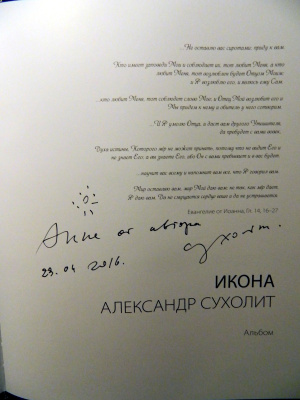 ...Не оставлю вас сиротами; приду к вам.
Кто имеет заповеди Мои и соблюдает их, тот любит Меня; а кто
любит Меня, тот возлюблен будет Отцем Моим;
и Я возлюблю его и явлюсь ему Сам.
...кто любит Меня, тот соблюдет слово Мое; и Отец Мой возлюбит его и
Мы придем к нему и обитель у него сотворим.
...И Я умолю Отца, и даст вам другого Утешителя,
да пребудет с вами вовек,
Духа истины, Которого мир не может принять, потому что не видит Его и
не знает Его; а вы знаете Его, ибо Он с вами пребывает и в вас будет.
...научит вас всему и напомнит вам все, что Я говорил вам.
Мир оставляю вам, мир Мой даю вам: не так, как мир дает,
Я даю вам. Да не смущается сердце ваше и да не устрашается.
Евангелие от Иоанна, Гл. 14, 16-27
Анне от автора
Сухолит.
23.04 2016.
ИКОНА
АЛЕКСАНДР СУХОЛИТ
Альбом